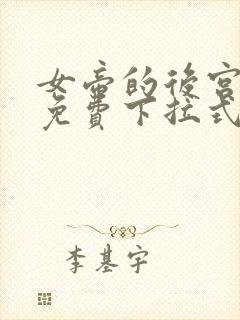 女帝的後宮
免費下拉式
李基宇